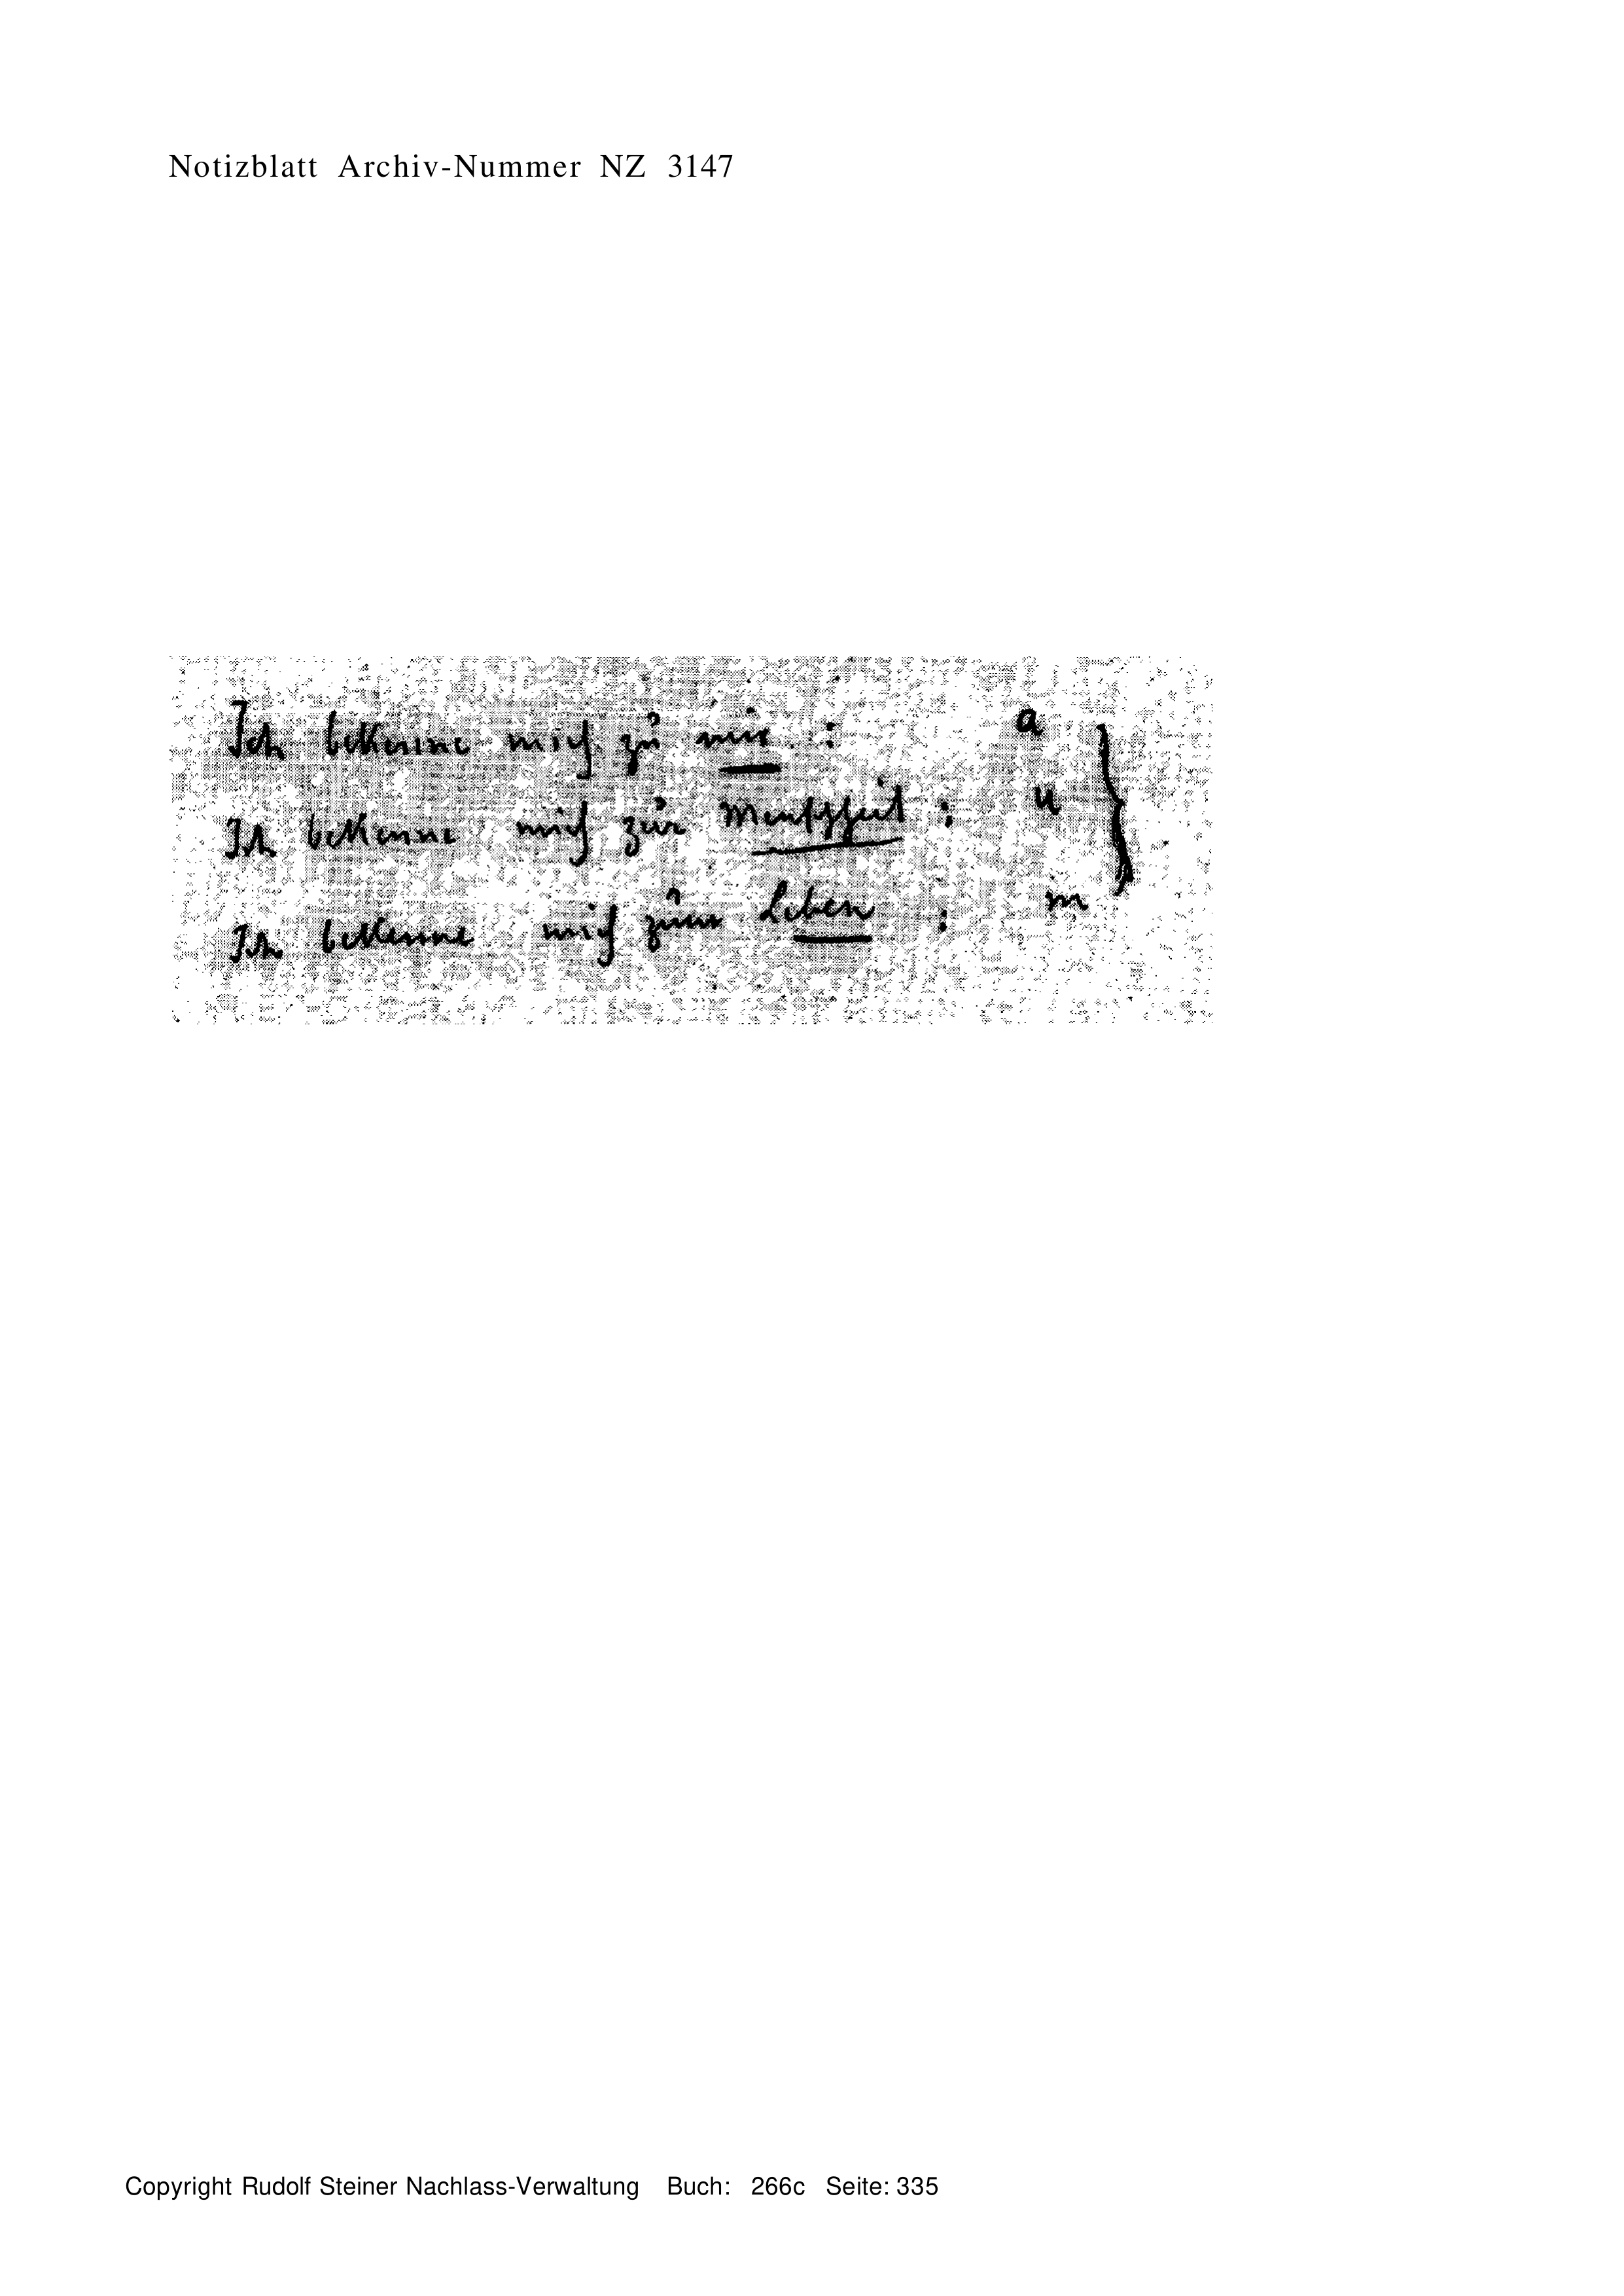 Notizblatt Archiv-Nummer NZ 3147
Ich bekenne mich zu mir : a
Ich bekenne mich zur Menschheit : u
Ich bekenne mich zum Leben : m
Copyright Rudolf Steiner Nachlass-Verwaltung Buch: 266c Seite: 335